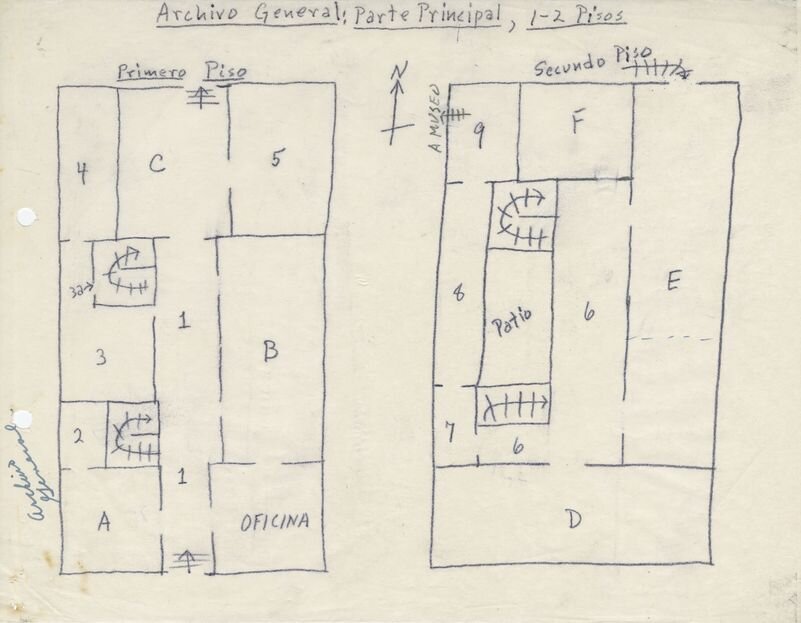 Archivo General: Parte Principal, 1-2 Pisos
Primero Piso
4
C
5
3a
1
3
B
2
1
A
OFICINA
Archivo
General
N
Secundo Piso
A MUSEO
9
F
8
Patio
6
E
7
6
D